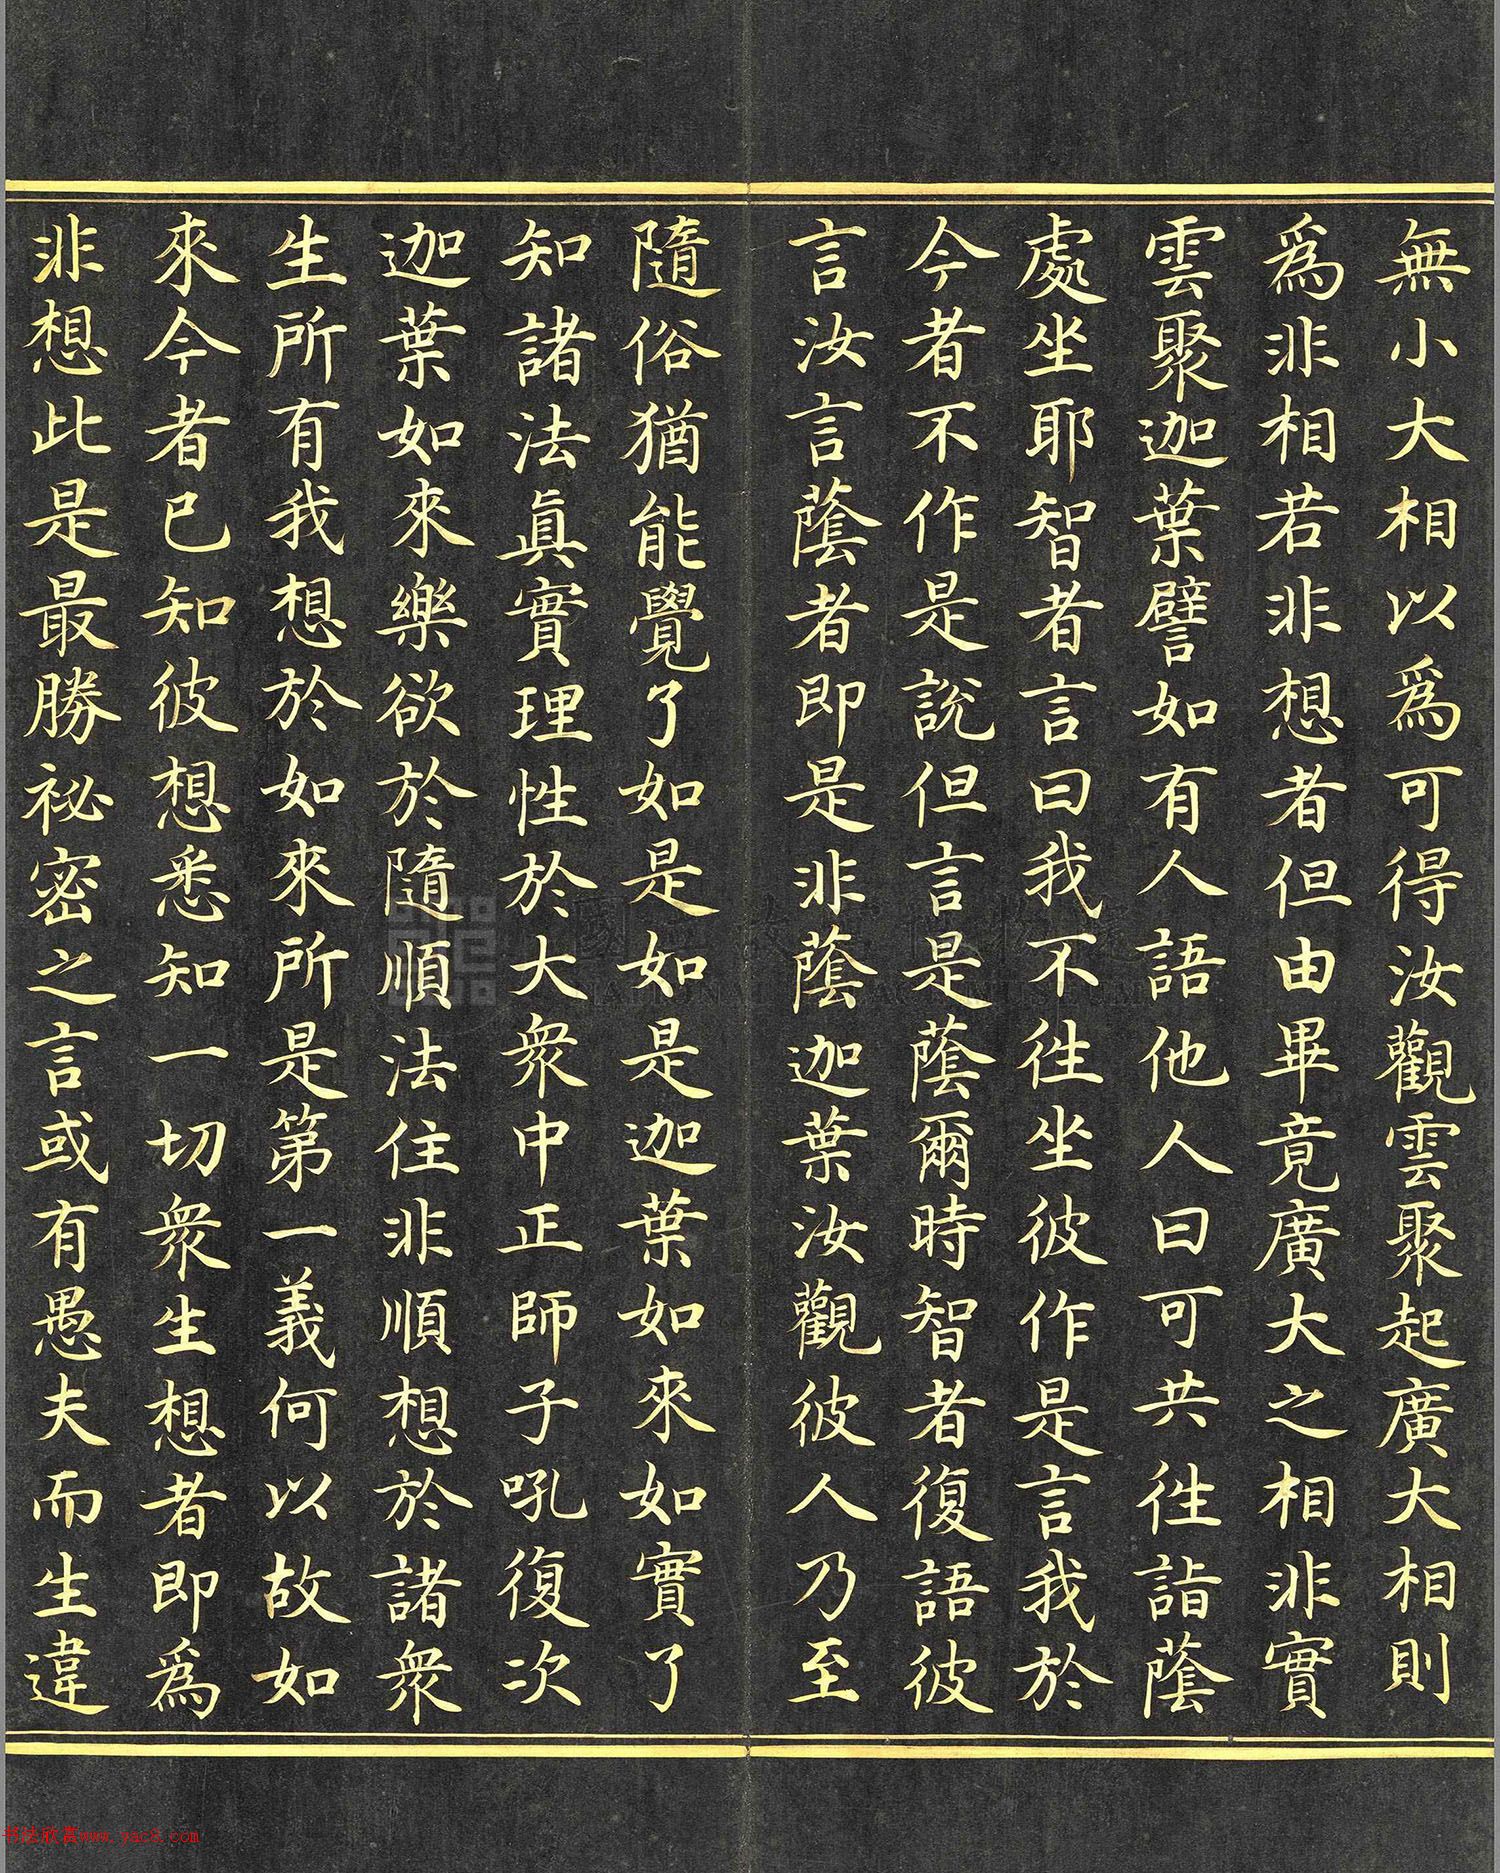 無小大相以為可得汝觀雲聚起廣大相則
為非相若非想者但由畢竟廣大之相非實
雲聚迦葉譬如有人語他人曰可共徃詣蔭
處坐耶智者言曰我不徃坐彼作是言我於
今者不作是說但言是蔭爾時智者復語彼
言汝言蔭者即是非蔭迦葉汝觀彼人乃至
隨俗猶能覺了如是如是迦葉如來如實了
知諸法真實理性於大衆中正師子吼復次
迦葉如來樂欲於隨順法住非順想於諸衆
生所有我想於如來所是第一義何以故如
來今者已知彼想悉知一切衆生想者即為
非想此是最勝祕密之言或有愚夫而生違
NATIONAL PALACE MUSEUM
书法欣赏www.yac8.com